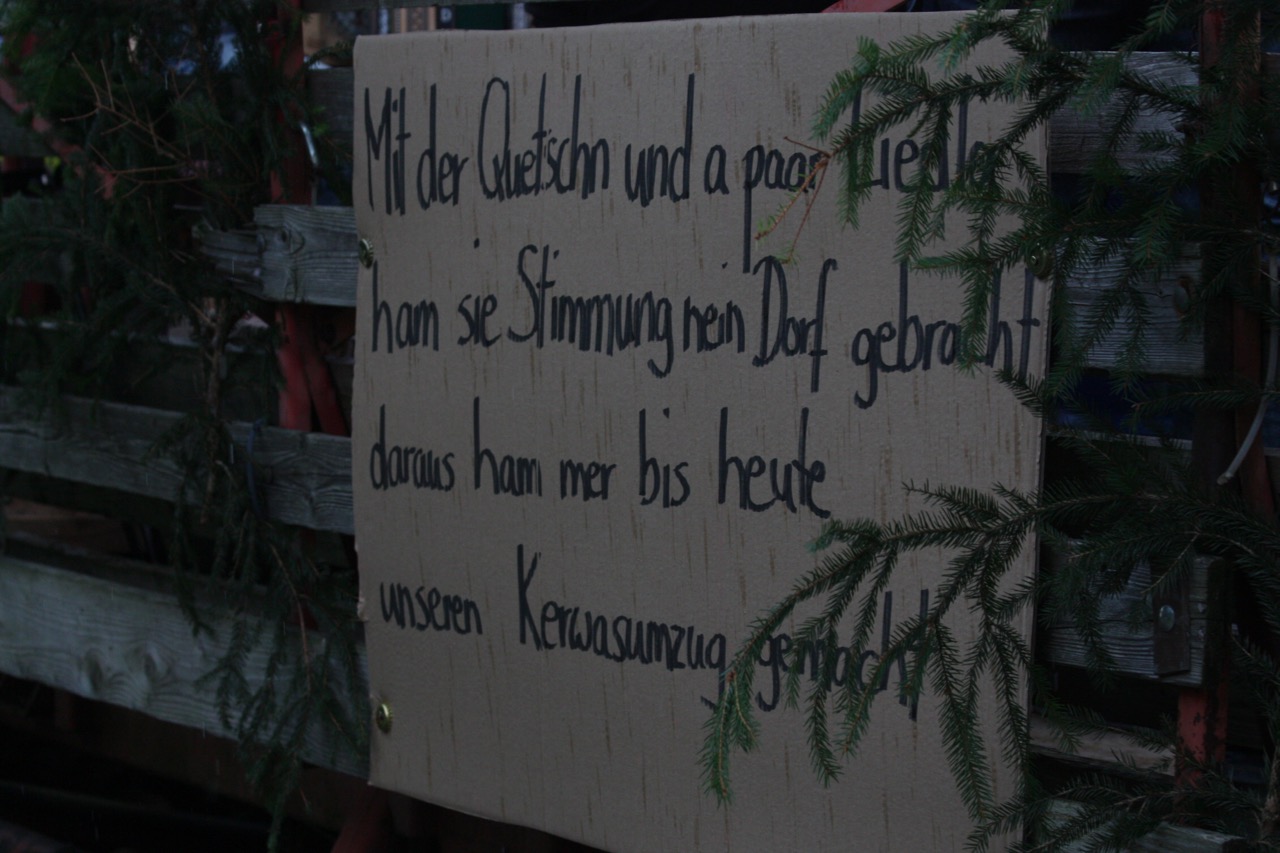 Mit der Quetschn und a paar Liedla
ham sie Stimmung nein Dorf gebracht
daraus ham mer bis heute
unseren Kerwasumzug gemacht